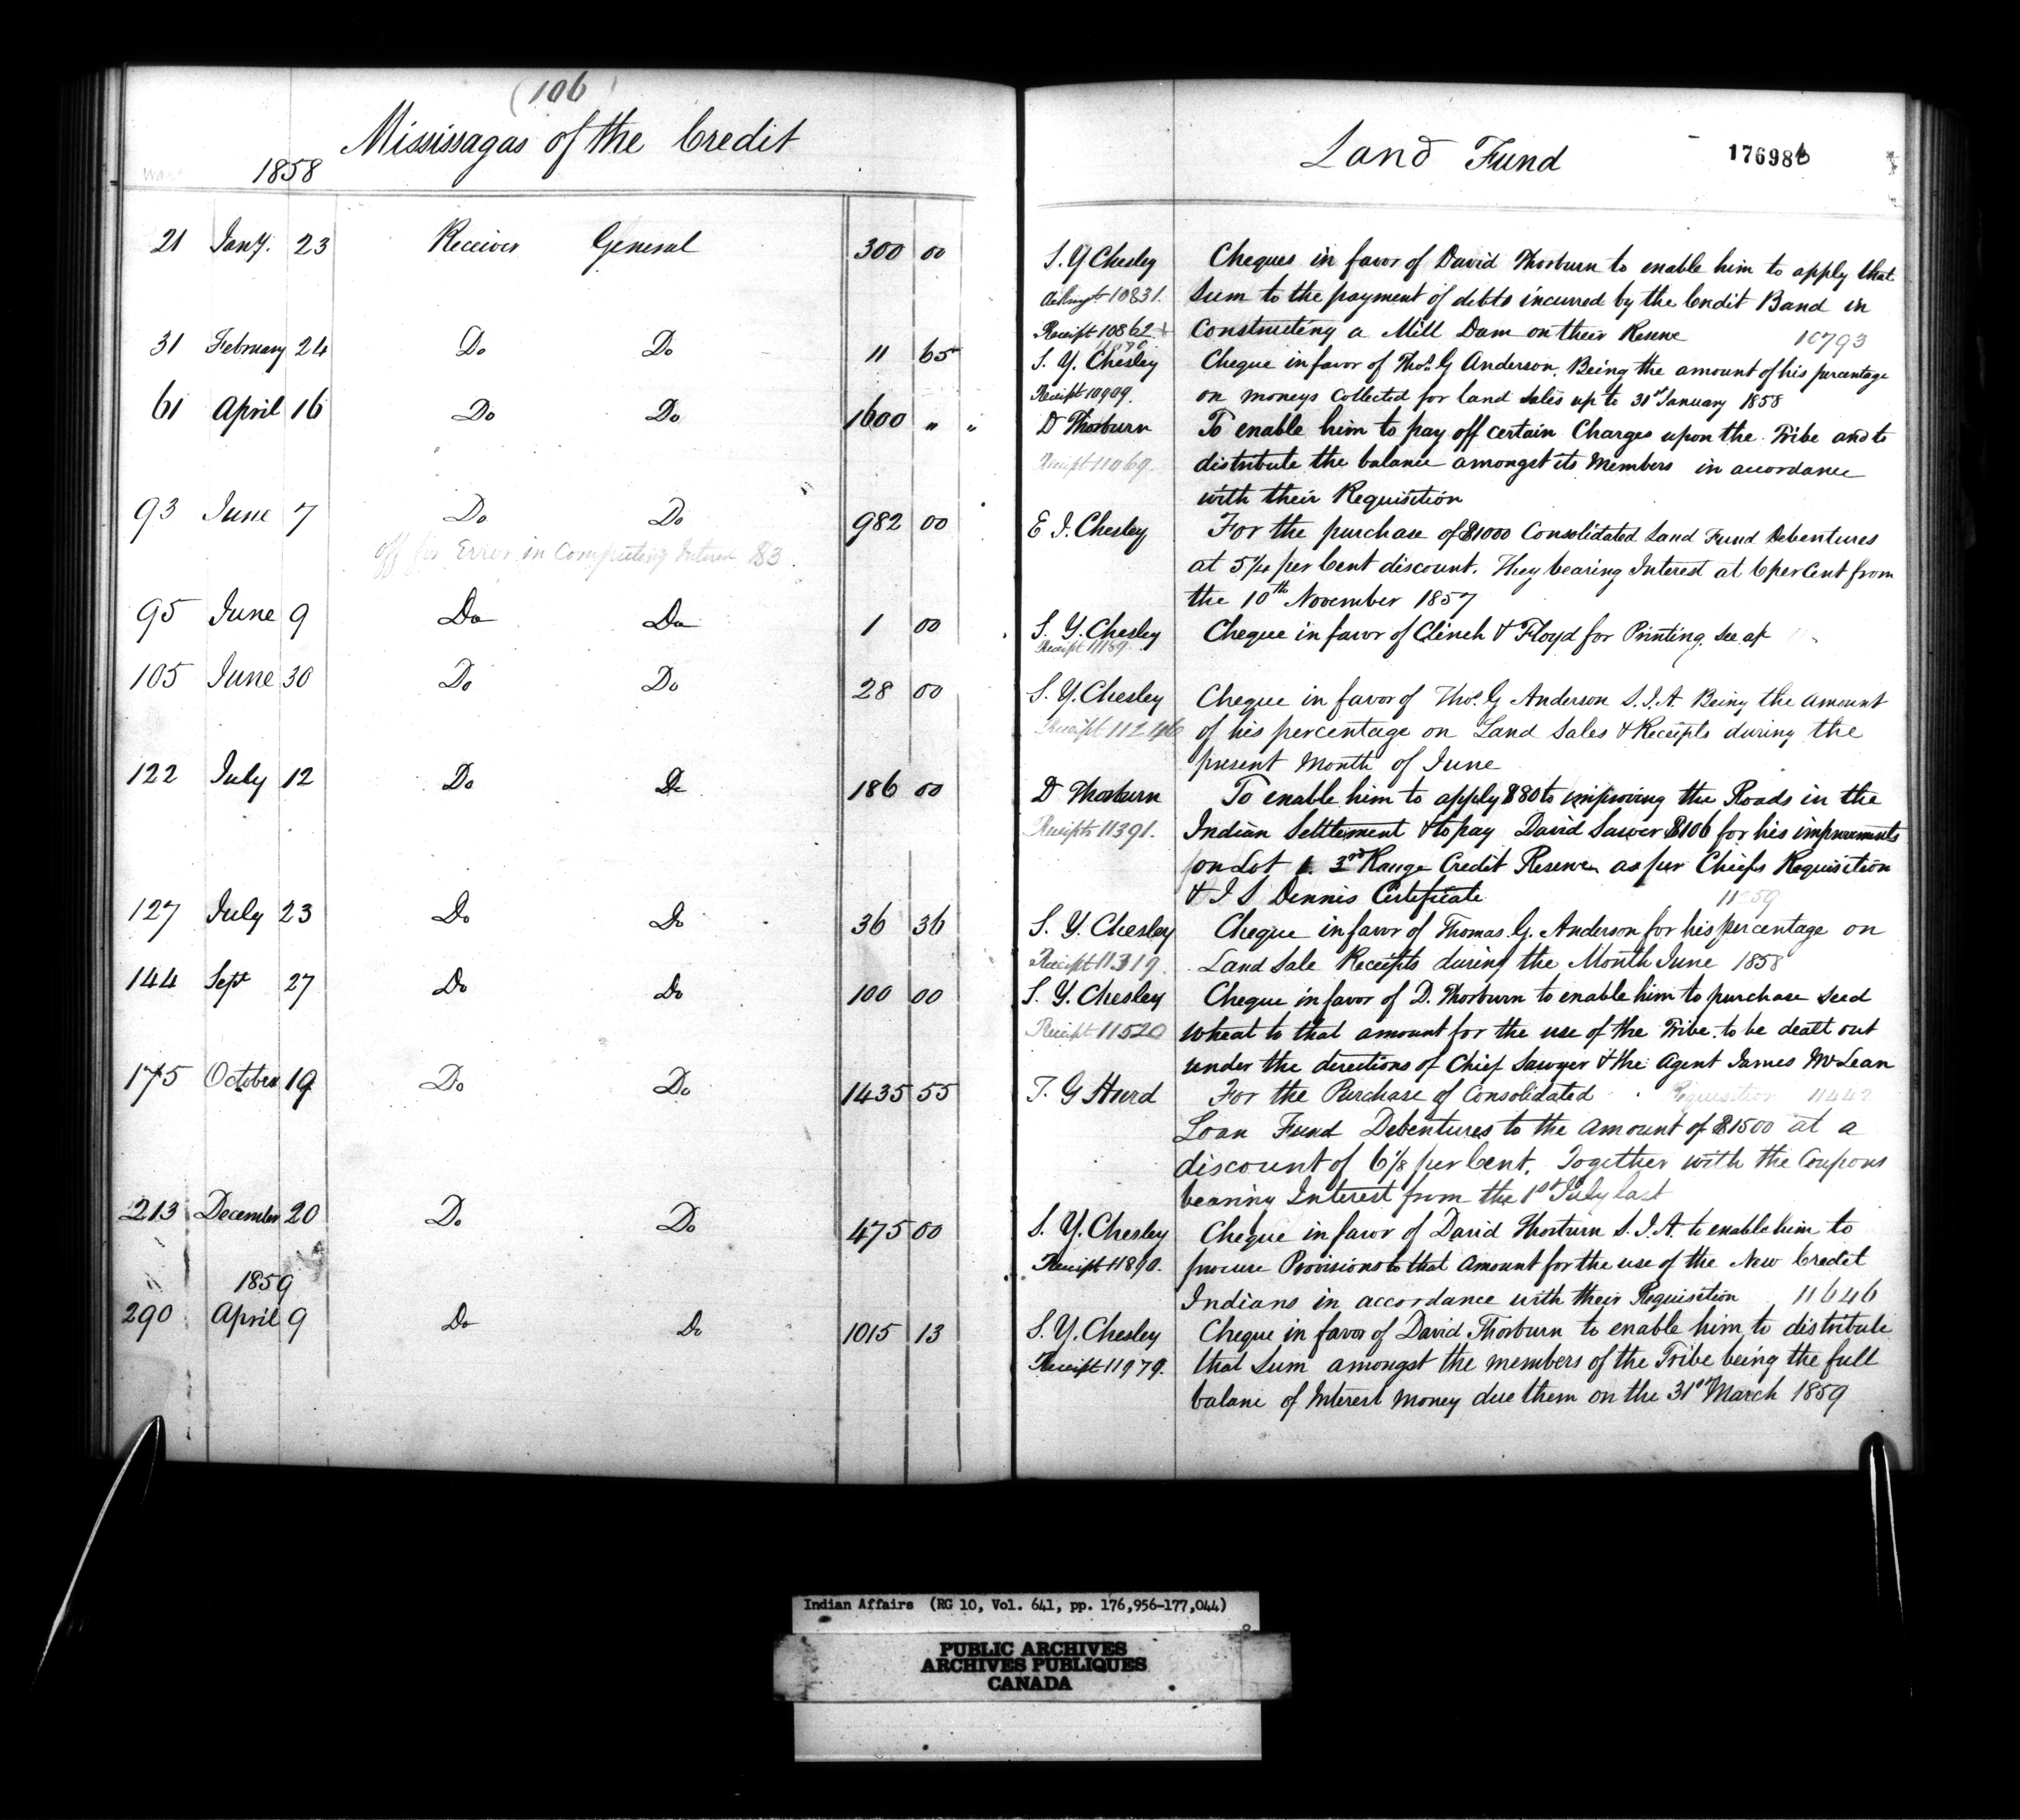 (106)
Mississagas of the Credit
1858
21 Jany. 23 Receiver General 300 00
31 February 24 Do Do 11 65
61 April 16 Do Do 1600 " "
93 June 7 Do Do 982 00
off for Error in Computing Interest $3
95 June 9 Do Do 1 00
105 June 30 Do Do 28 00
122 July 12 Do Do 186 00
127 July 23 Do Do 36 36
144 Sept 27 Do Do 100 00
175 October 19 Do Do 1435 55
213 December 20 Do Do 475 00
1859
290 April 9 Do Do 1015 13
Land Fund
176986
S. Y Chesley Cheques in favor of David Thorburn to enable him to apply that
10831. Sum to the payment of debts incurred by the Credit Band in
Receipt 10862 Constructing a Mill Dam on their Reserve 10793
S. Y. Chesley Cheque in favor of Thos. G Anderson. Being the amount of his percentage
Receipt 10909. on moneys Collected for land sales up to 31st January 1858
D Thorburn To enable him to pay off certain Charges upon the Tribe and to
Receipt 11069. distribute the balance amongst its Members in accordance
with their Requisition
E I. Chesley For the purchase of $1000 Consolidated Land Fund Debentures
at 5 1/4 per Cent discount. They bearing Interest at 6 per Cent from
the 10th November 1857
S. Y. Chesley Cheque in favor of Clinch & Floyd for Printing. See ap
Receipt 11189.
S. Y. Chesley Cheque in favor of Thos. G Anderson S.I.A. Being the amount
Receipt 11246 of his percentage on Land Sales & Receipts during the
present Month of June
D Thorburn To enable him to apply $80 to improving the Roads in the
Receipts 11391. Indian Settlement & to pay David Sawer $106 for his improvements
on Lot 1. 3rd Range Credit Reserve as per Chiefs Requisition
& I S Dennis Certificate
S. Y. Chesley Cheque in favor of Thomas. G. Anderson for his percentage on
Receipt 11319. Land Sale Receipts during the Month June 1858
S. Y. Chesley Cheque in favor of D. Thorburn to enable him to purchase seed
Receipt 11520 wheat to that amount for the use of the Tribe. to be dealt out
under the directions of Chief Sawyer & the Agent James McLean
T. G Hurd For the Purchase of Consolidated Requisition 11442
Loan Fund Debentures to the amount of $1500 at a
discount of 6 1/8 per Cent. Together with the Coupons
bearing Interest from the 1st July last
S. Y. Chesley Cheque in favor of David Thorburn S.I.A. to enable him to
Receipt 11890. procure Provisions to that Amount for the use of the New Credit
Indians in accordance with their Requisition 11646
S. Y. Chesley Cheque in favor of David Thorburn to enable him to distribute
Receipt 11979. that Sum amongst the members of the Tribe being the full
balane of Interest Money due them on the 31st March 1859
Indian Affairs (RG 10, Vol. 641, pp. 176,956-177,044)
PUBLIC ARCHIVES
ARCHIVES PUBLIQUES
CANADA